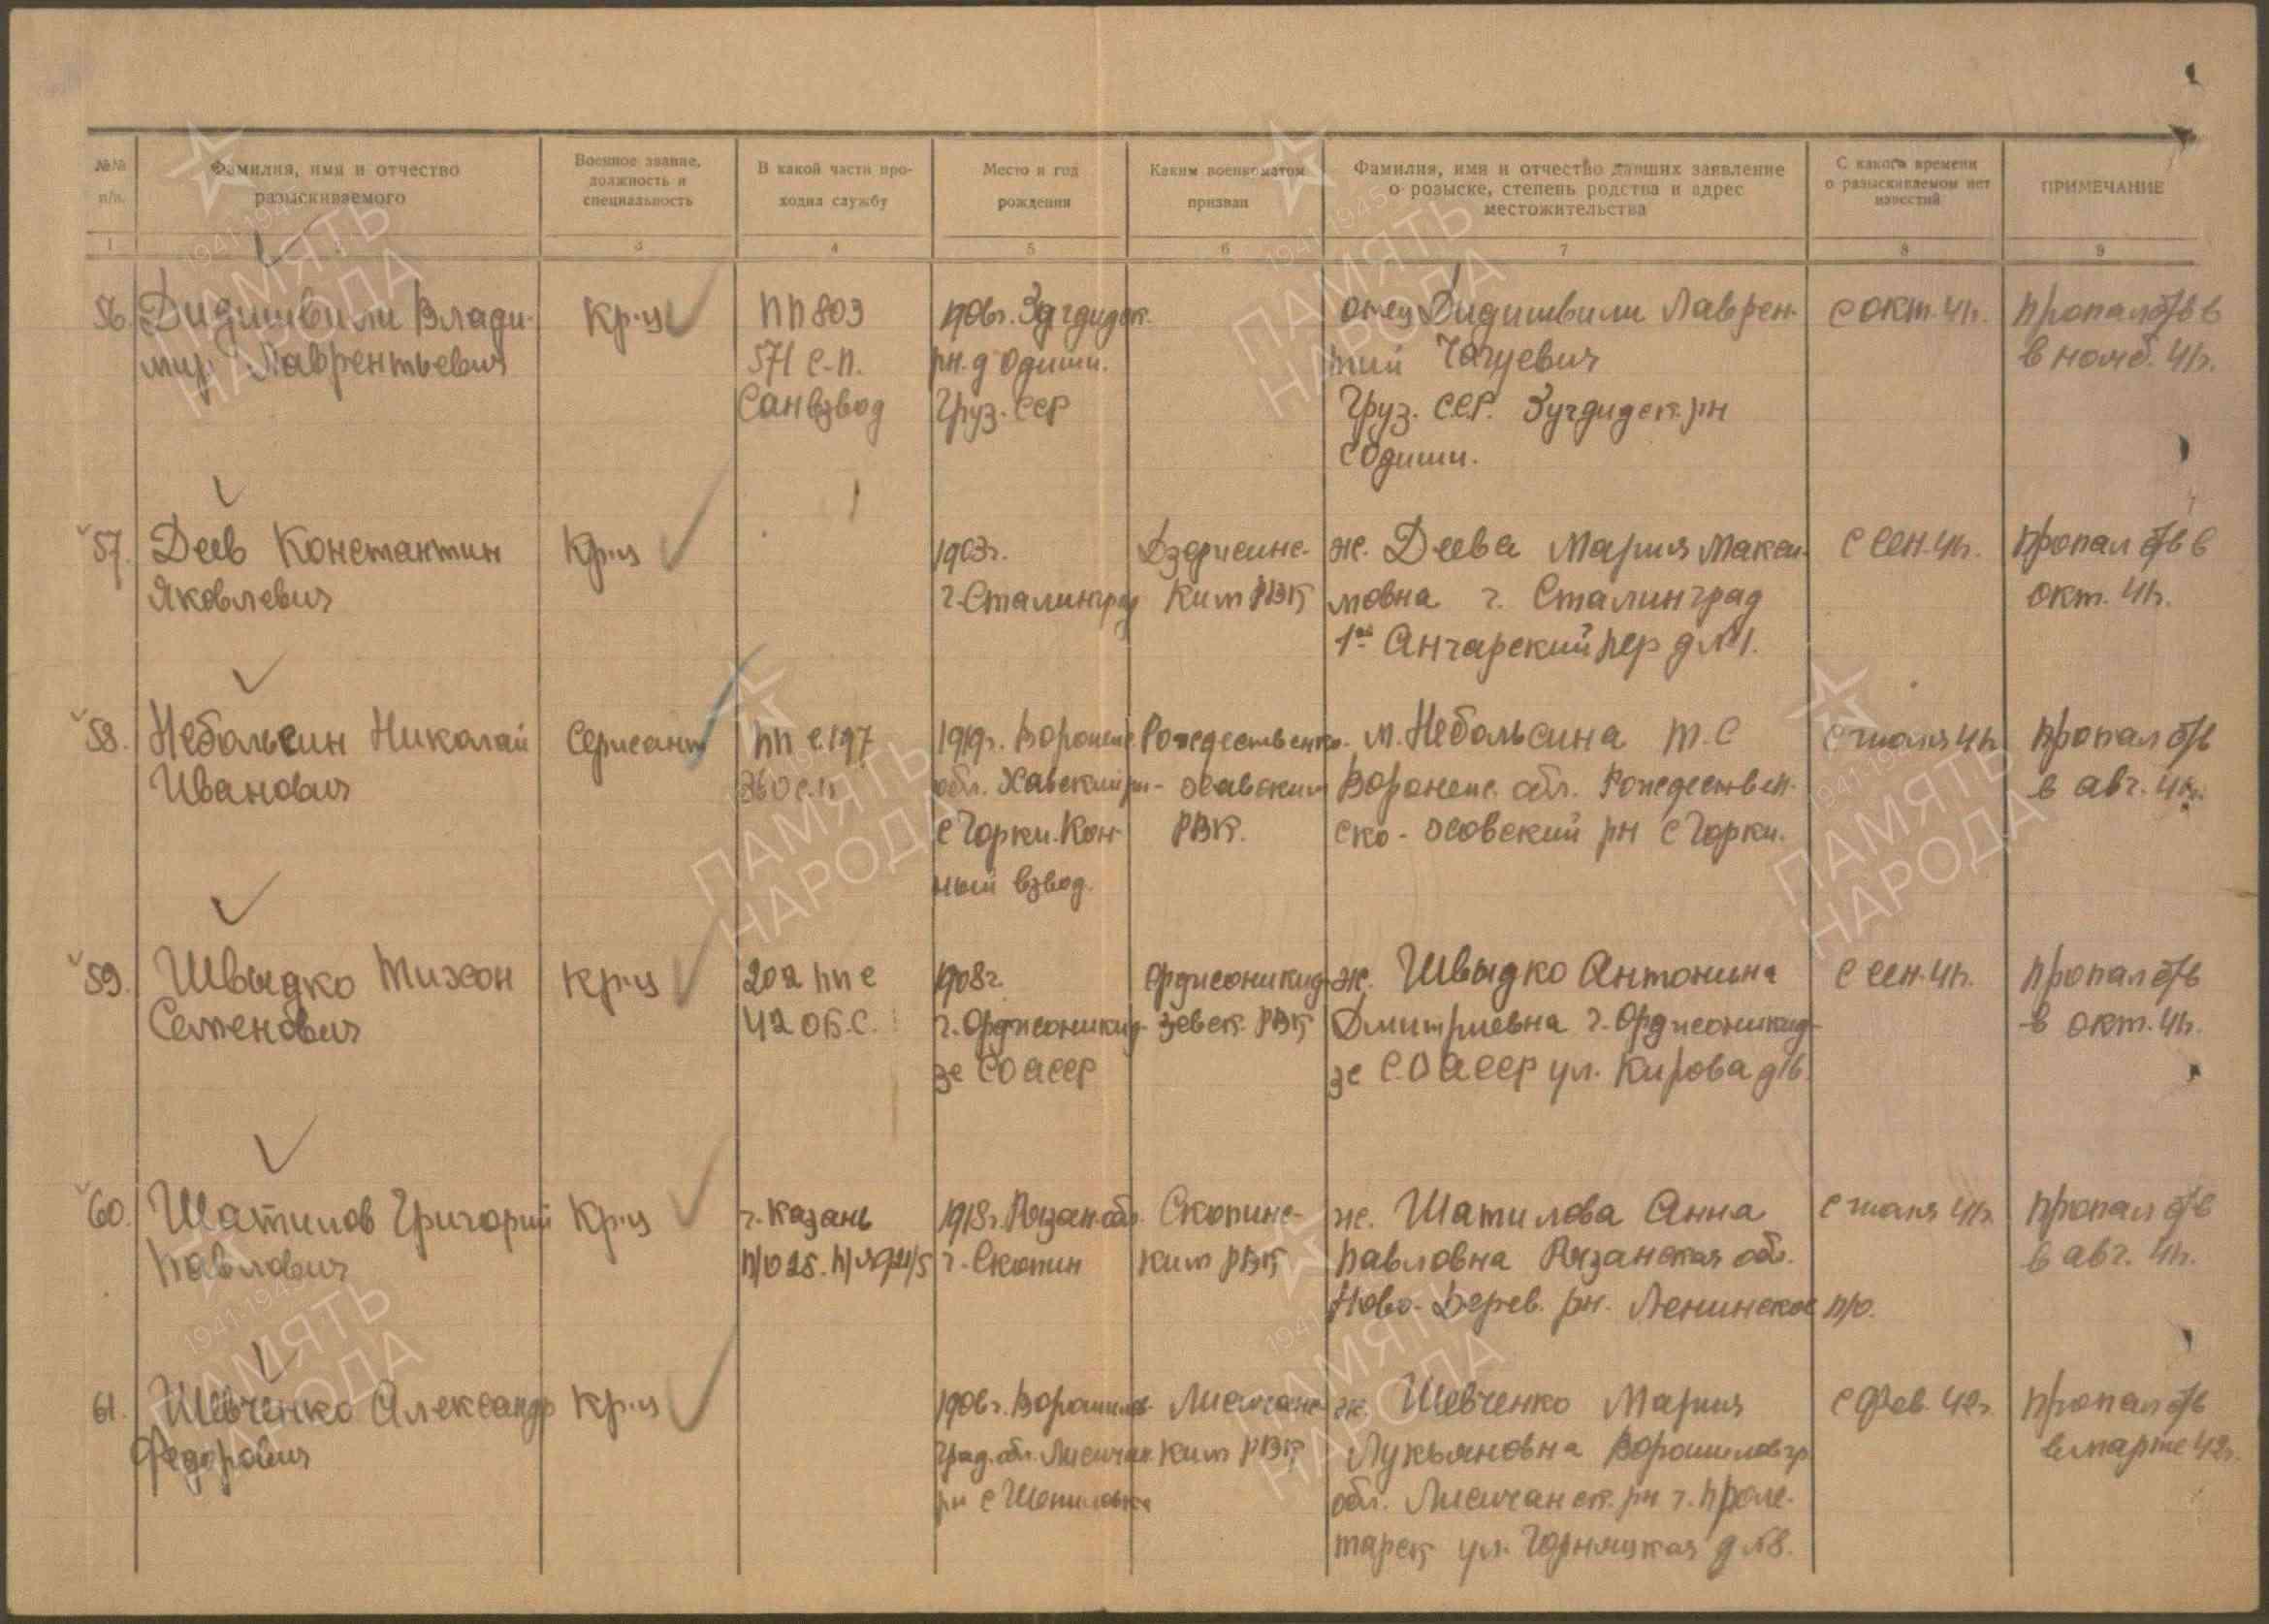 №№ п/п.
Фамилия, имя и отчество разыскиваемого
Военное звание, должность и специальность
В какой части проходил службу
Место и год рождения
Каким военкоматом призван
Фамилия, имя и отчество давших заявление о розыске, степень родства и адрес местожительства
С какого времени о разыскиваемом нет известий
ПРИМЕЧАНИЕ
1 3 4 5 6 7 8 9
56. Дидишвили Влади-
мир Лаврентьевич
Кр-ц
пп 803
571 с.п.
Санвзвод
Зугдидск.
рн. д Одиши.
Груз. ССР
отец Дидишвили Лаврен-
тий
Груз. ССР. Зугдидск. рн
с Одиши.
с окт. 41г.
пропал б/в в
в нояб. 41г.
57. Деев Константин
Яковлевич
Кр-ц
1903г.
г. Сталинград
Дзержинс-
ким РВК
ж. Деева Мария Макси-
мовна г. Сталинград
1ый Ангарский пер д №1.
с сен. 41г.
пропал б/в в
окт. 41г.
58. Небольсин Николай
Иванович
Сержант
ппс 197
с.п.
1919г. Воронеж
обл. Хавский рн
с Горки. Кон-
ный взвод.
Рождественско-
- Хавским
РВК.
м. Небольсина Т. С
Воронеж. обл. Рождествен-
ско-Хавский рн с Горки.
с июля 41г.
пропал б/в
в авг. 41г.
59. Швыдко Тихон
Семенович
Кр-ц
202 ппс
42 ОБ.С.
1908г.
г. Орджоникид-
зе СОАССР
Орджоникид-
зевск. РВК
ж. Швыдко Антонина
Дмитриевна г. Орджоникид-
зе С.О АССР ул. Кирова
с сен. 41г.
пропал б/в
в окт. 41г.
60. Шатилов Григорий
Павлович
Кр-ц
г. Казань
п/о 28.
1918г. Рязан. обл.
г. Скопин
Скопинс-
ким РВК
ж. Шатилова Анна
Павловна Рязанская обл.
Ново-Дерев. рн. Ленинское п/о.
с июля 41г.
пропал б/в
в авг. 41г.
61. Шевченко Александр
Федорович
Кр-ц
1906г. Ворошилов-
град. обл. Лисичан.
рн с Шепиловка
Лисичанс-
ким РВК
ж. Шевченко Мария
Лукьяновна Ворошиловгр
обл. Лисичанск. рн г. Проле-
тарск ул. Горняцкая д №8.
с фев. 42г.
пропал б/в
в марте 42г.
1941-1945
ПАМЯТЬ
НАРОДА